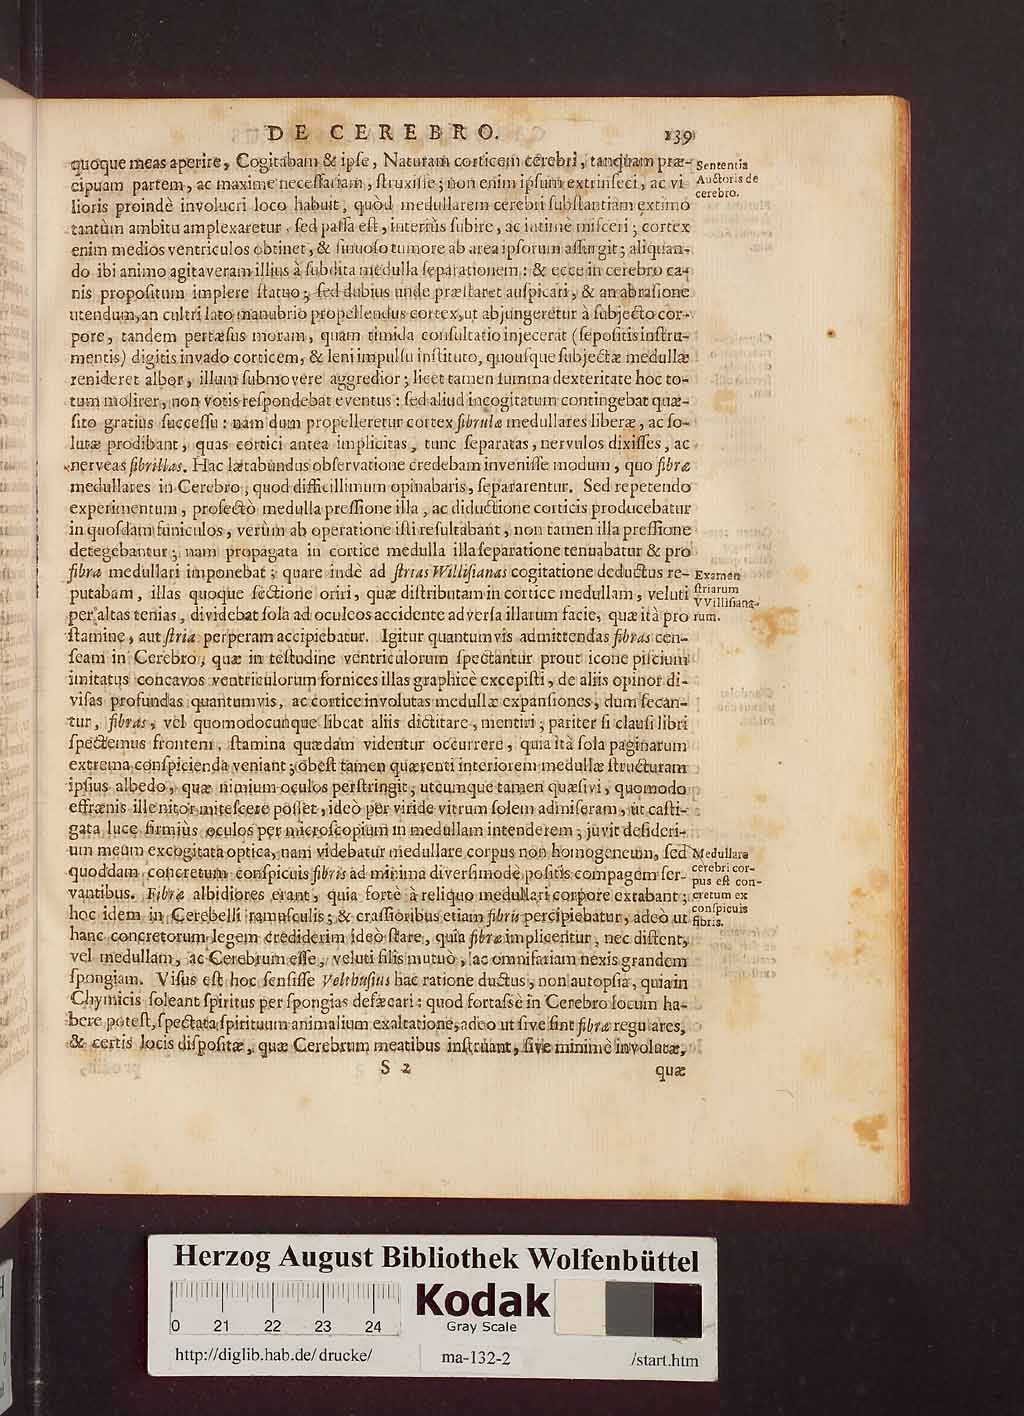 DE CEREBRO. 139
quoque meas aperire, Cogitabam & ipse, Naturam corticem cerebri, tanquam præ-
cipuam partem, ac maxime necessariam, struxisse; non enim ipsum extrinseci, ac vi
lioris proindè involucri loco habuit, quòd medullarem cerebri substantiam extimo
tantùm ambitu amplexaretur, sed passa est, interiùs subire, ac intimè misceri; cortex
enim medios ventriculos obtinet, & sinuoso tumore ab area ipsorum assurgit; aliquan-
do ibi animo agitaveram illius à subdita medulla separationem: & ecce in cerebro ca-
nis propositum implere statuo; sed dubius unde præstaret auspicari, & an abrasione
utendum, an cultri lato manubrio propellendus cortex, ut abjungeretur à subjecto cor-
pore, tandem pertæsus moram, quam timida consultatio injecerat (sepositis instru-
mentis) digitis invado corticem, & leni impulsu instituto, quousque subjectæ medullæ
renideret albor, illum submovere aggredior; licet tamen summa dexteritate hoc to-
tum molirer, non votis respondebat eventus: sed aliud incogitatum contingebat quæ-
sito gratius successu: nam dum propelleretur cortex fibrulæ medullares liberæ, ac so-
lutæ prodibant, quas cortici antea implicitas, tunc separatas, nervulos dixisses, ac
nerveas fibrillas. Hac lætabundus observatione credebam invenisse modum, quo fibræ
medullares in Cerebro, quod difficillimum opinabaris, separarentur. Sed repetendo
experimentum, profectò medulla pressione illa, ac diductione corticis producebatur
in quosdam funiculos, verùm ab operatione isti resultabant, non tamen illa pressione
detegebantur; nam propagata in cortice medulla illa separatione tenuabatur & pro
fibra medullari imponebat; quare indè ad strias Willisianas cogitatione deductus re-
putabam, illas quoque sectione oriri, quæ distributam in cortice medullam, veluti
per altas tenias, dividebat sola ad oculeos accidente adversa illarum facie, quæ ità pro
stamine, aut stria perperam accipiebatur. Igitur quantumvis admittendas fibras cen-
seam in Cerebro, quæ in testudine ventriculorum spectantur prout icone piscium
imitatus concavos ventriculorum fornices illas graphicè excepisti, de aliis opinor di-
visas profundas quantumvis, ac cortice involutas medullæ expansiones, dum secan-
tur, fibras, vel quomodocunque libeat aliis dictitare, mentiri; pariter si clausi libri
spectemus frontem, stamina quædam videntur occurrere, quia ità sola paginarum
extrema conspicienda veniant; obest tamen quærenti interiorem medullæ structuram
ipsius albedo, quæ nimium oculos perstringit; utcumque tamen quæsivi, quomodo
effrænis ille nitor mitescere posset, ideò per viride vitrum solem admiseram, ut casti-
gata luce firmiùs oculos per microscopium in medullam intenderem; juvit desideri-
um meum excogitata optica, nam videbatur medullare corpus non homogeneum, sed
quoddam concretum conspicuis fibris ad minima diversimode positis compagem ser-
vantibus. Fibræ albidiores erant, quia fortè à reliquo medullari corpore extabant;
hoc idem in Cerebelli ramusculis; & crassioribus etiam fibris percipiebatur, adeò ut
hanc concretorum legem crediderim ideò stare, quia fibræ implicentur, nec distent,
vel medullam, ac Cerebrum esse, veluti filis mutuò, ac omnifariam nexis grandem
spongiam. Visus est hoc sensisse Velthusius hac ratione ductus, non autopsia, quia in
Chymicis soleant spiritus per spongias defæcari: quod fortassè in Cerebro locum ha-
bere potest, spectata spirituum animalium exaltatione, adeo ut sive sint fibræ regulares,
& certis locis dispositæ, quæ Cerebrum meatibus instruant, sive minimè involutæ,
S 2 quæ
Sententia
Auctoris de
cerebro.
Examen
striarum
VVillisiana-
rum.
Medullare
cerebri cor-
pus est con-
cretum ex
conspicuis
fibris.
Herzog August Bibliothek Wolfenbüttel
Kodak
Gray Scale
0 21 22 23 24
http://diglib.hab.de/drucke/ ma-132-2 /start.htm